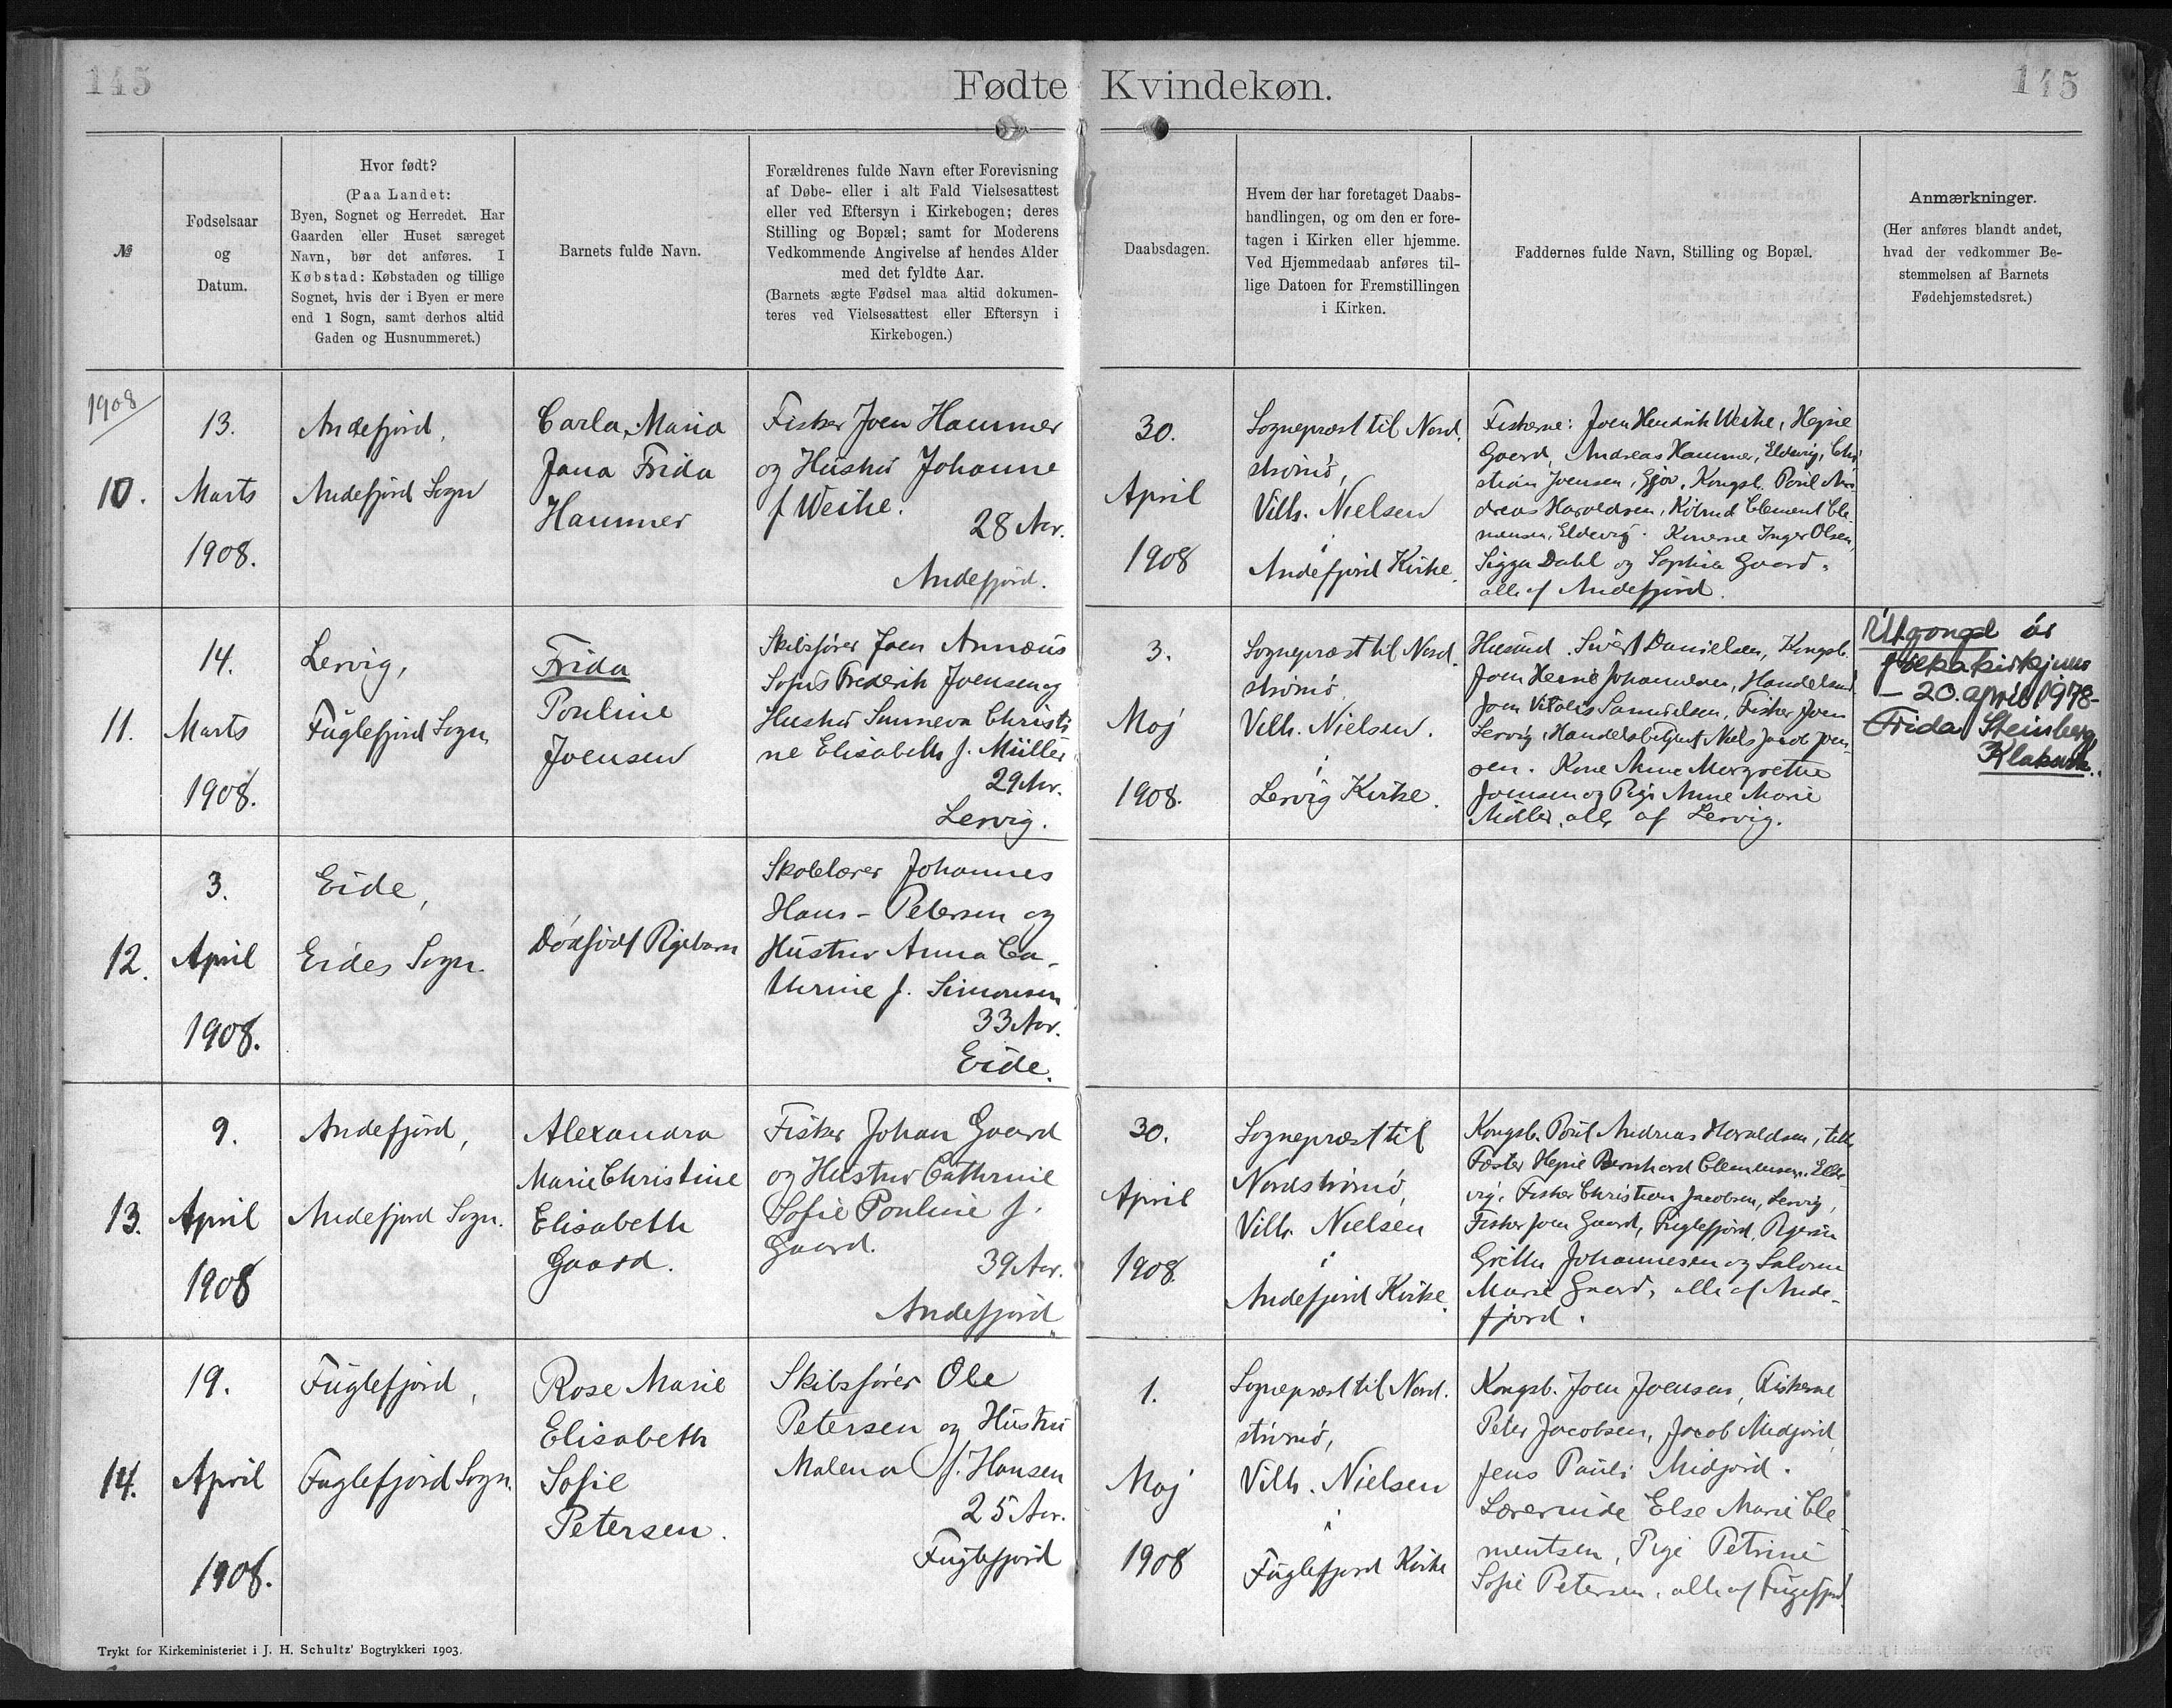 145
Fødte Kvindekøn.
145
№
Fødselsaar
og
Datum.
Hvor født?
(Paa Landet:
Byen, Sognet og Herredet. Har
Gaarden eller Huset særeget
Navn, bør det anføres. I
Købstad: Købstaden og tillige
Sognet, hvis der i Byen er mere
end 1 Sogn, samt derhos altid
Gaden og Husnummeret.)
Barnets fulde Navn.
Forældrenes fulde Navn efter Forevisning
af Døbe- eller i alt Fald Vielsesattest
eller ved Eftersyn i Kirkebogen; deres
Stilling og Bopæl; samt for Moderens
Vedkommende Angivelse af hendes Alder
med det fyldte Aar.
(Barnets ægte Fødsel maa altid dokumen-
teres ved Vielsesattest eller Eftersyn i
Kirkebogen.)
Daabsdagen.
Hvem der har foretaget Daabs-
handlingen, og om den er fore-
tagen i Kirken eller hjemme.
Ved Hjemmedaab anføres til-
lige Datoen for Fremstillingen
i Kirken.
Faddernes fulde Navn, Stilling og Bopæl.
Anmærkninger.
(Her anføres blandt andet,
hvad der vedkommer Be-
stemmelsen af Barnets
Fødehjemstedsret.)
1908
10.
13.
Marts
1908.
Andefjord,
Andefjord Sogn
Carla Maria
Jana Frida
Hammer
Fisker Joen Hammer
og Hustru Johanne
f. Weihe.
28 Aar.
Andefjord.
30.
April
1908
Sognepræst til Nord-
strømø,
Vilh. Nielsen
i
Andefjord Kirke.
Fiskerne: Joen Hendrik Weihe, Hejne
Gaard, Andreas Hammer, Eldevig, Chri
stian Joensen, Gjov, Kongsb. Poul An-
dreas Haraldsen, Clement Cle-
mensen, Eldevig. Konerne Inger Olsen,
Sigga Dahl og Sophia Gaard.
alle af Andefjord.
11.
14.
Marts
1908.
Lervig,
Fuglefjord Sogn
Frida
Pouline
Joensen
Skibsfører Joen Annæus
Sofus Frederik Joensen og
Hustru Sunneva Christi
ne Elisabeth f. Müller
29 Aar.
Lervig.
3.
Maj
1908.
Sognepræst til Nord-
strømø
Vilh. Nielsen.
i
Lervig Kirke.
Husmd. Sivert Danielsen, Kongsb.
Joen Heine Johannesen, Handelsmd
Joen Vitalis Samuelsen, Fisker Joen
Lervig, Handelsbetjent Niels Jacob Joen-
sen. Kone Anne Margrethe
Joensen og Pige Anne Marie
Müller, alle af Lervig.
Útgongd úr
fólkakirkjuni
- 20. april 1978 -
Frida Steinberg,
Klaksvík.
12.
3.
April
1908.
Eide,
Eides Sogn.
Dødfødt Pigebarn
Skolelærer Johannes
Hans-Petersen og
Hustru Anna Ca-
thrine f. Simonsen
33 Aar.
Eide.
13.
9.
April
1908
Andefjord,
Andefjord Sogn.
Alexandra
Marie Christine
Elisabeth
Gaard.
Fisker Johan Gaard
og Hustru Cathrine
Sofie Pouline f.
Gaard.
39 Aar.
Andefjord.
30.
April
1908
Sognepræst til
Nordstrømø,
Vilh. Nielsen
i
Andefjord Kirke.
Kongsb. Poul Andreas Haraldsen,
Fæster Hejne Bernhard Clemensen, Elde
vig, Fisker Christian Jacobsen, Lervig,
Fisker Joen Gaard, Fuglefjord,
Grethe Johannesen og Salome
Marie Gaard, alle af Ande-
fjord.
14.
19.
April
1908.
Fuglefjord,
Fuglefjord Sogn.
Rose Marie
Elisabeth
Sofie
Petersen.
Skibsfører Ole
Petersen og Hustru
Malena f. Hansen
25 Aar.
Fuglefjord
1.
Maj
1908
Sognepræst til Nord-
strømø,
Vilh. Nielsen
i
Fuglefjord Kirke
Kongsb. Joen Joensen, Fiskerne
Peter Jacobsen, Jacob Midjord,
Jens Pauli Midjord.
Lærerinde Else Marie Cle-
mentsen, Pige Petrine
Sofie Petersen, alle af Fuglefjord.
Trykt for Kirkeministeriet i J. H. Schultz' Bogtrykkeri 1903.